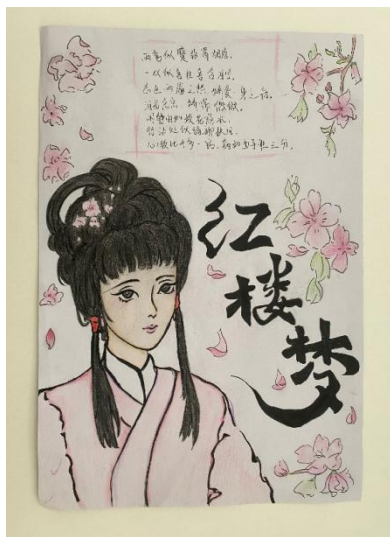 两弯似蹙非蹙罥烟眉,
一双似喜非喜含情目。
态生两靥之愁,娇袭一身之病。
泪光点点,娇喘微微。
闲静时如姣花照水,
行动处似弱柳扶风。
心较比干多一窍,病如西子胜三分。
红楼梦